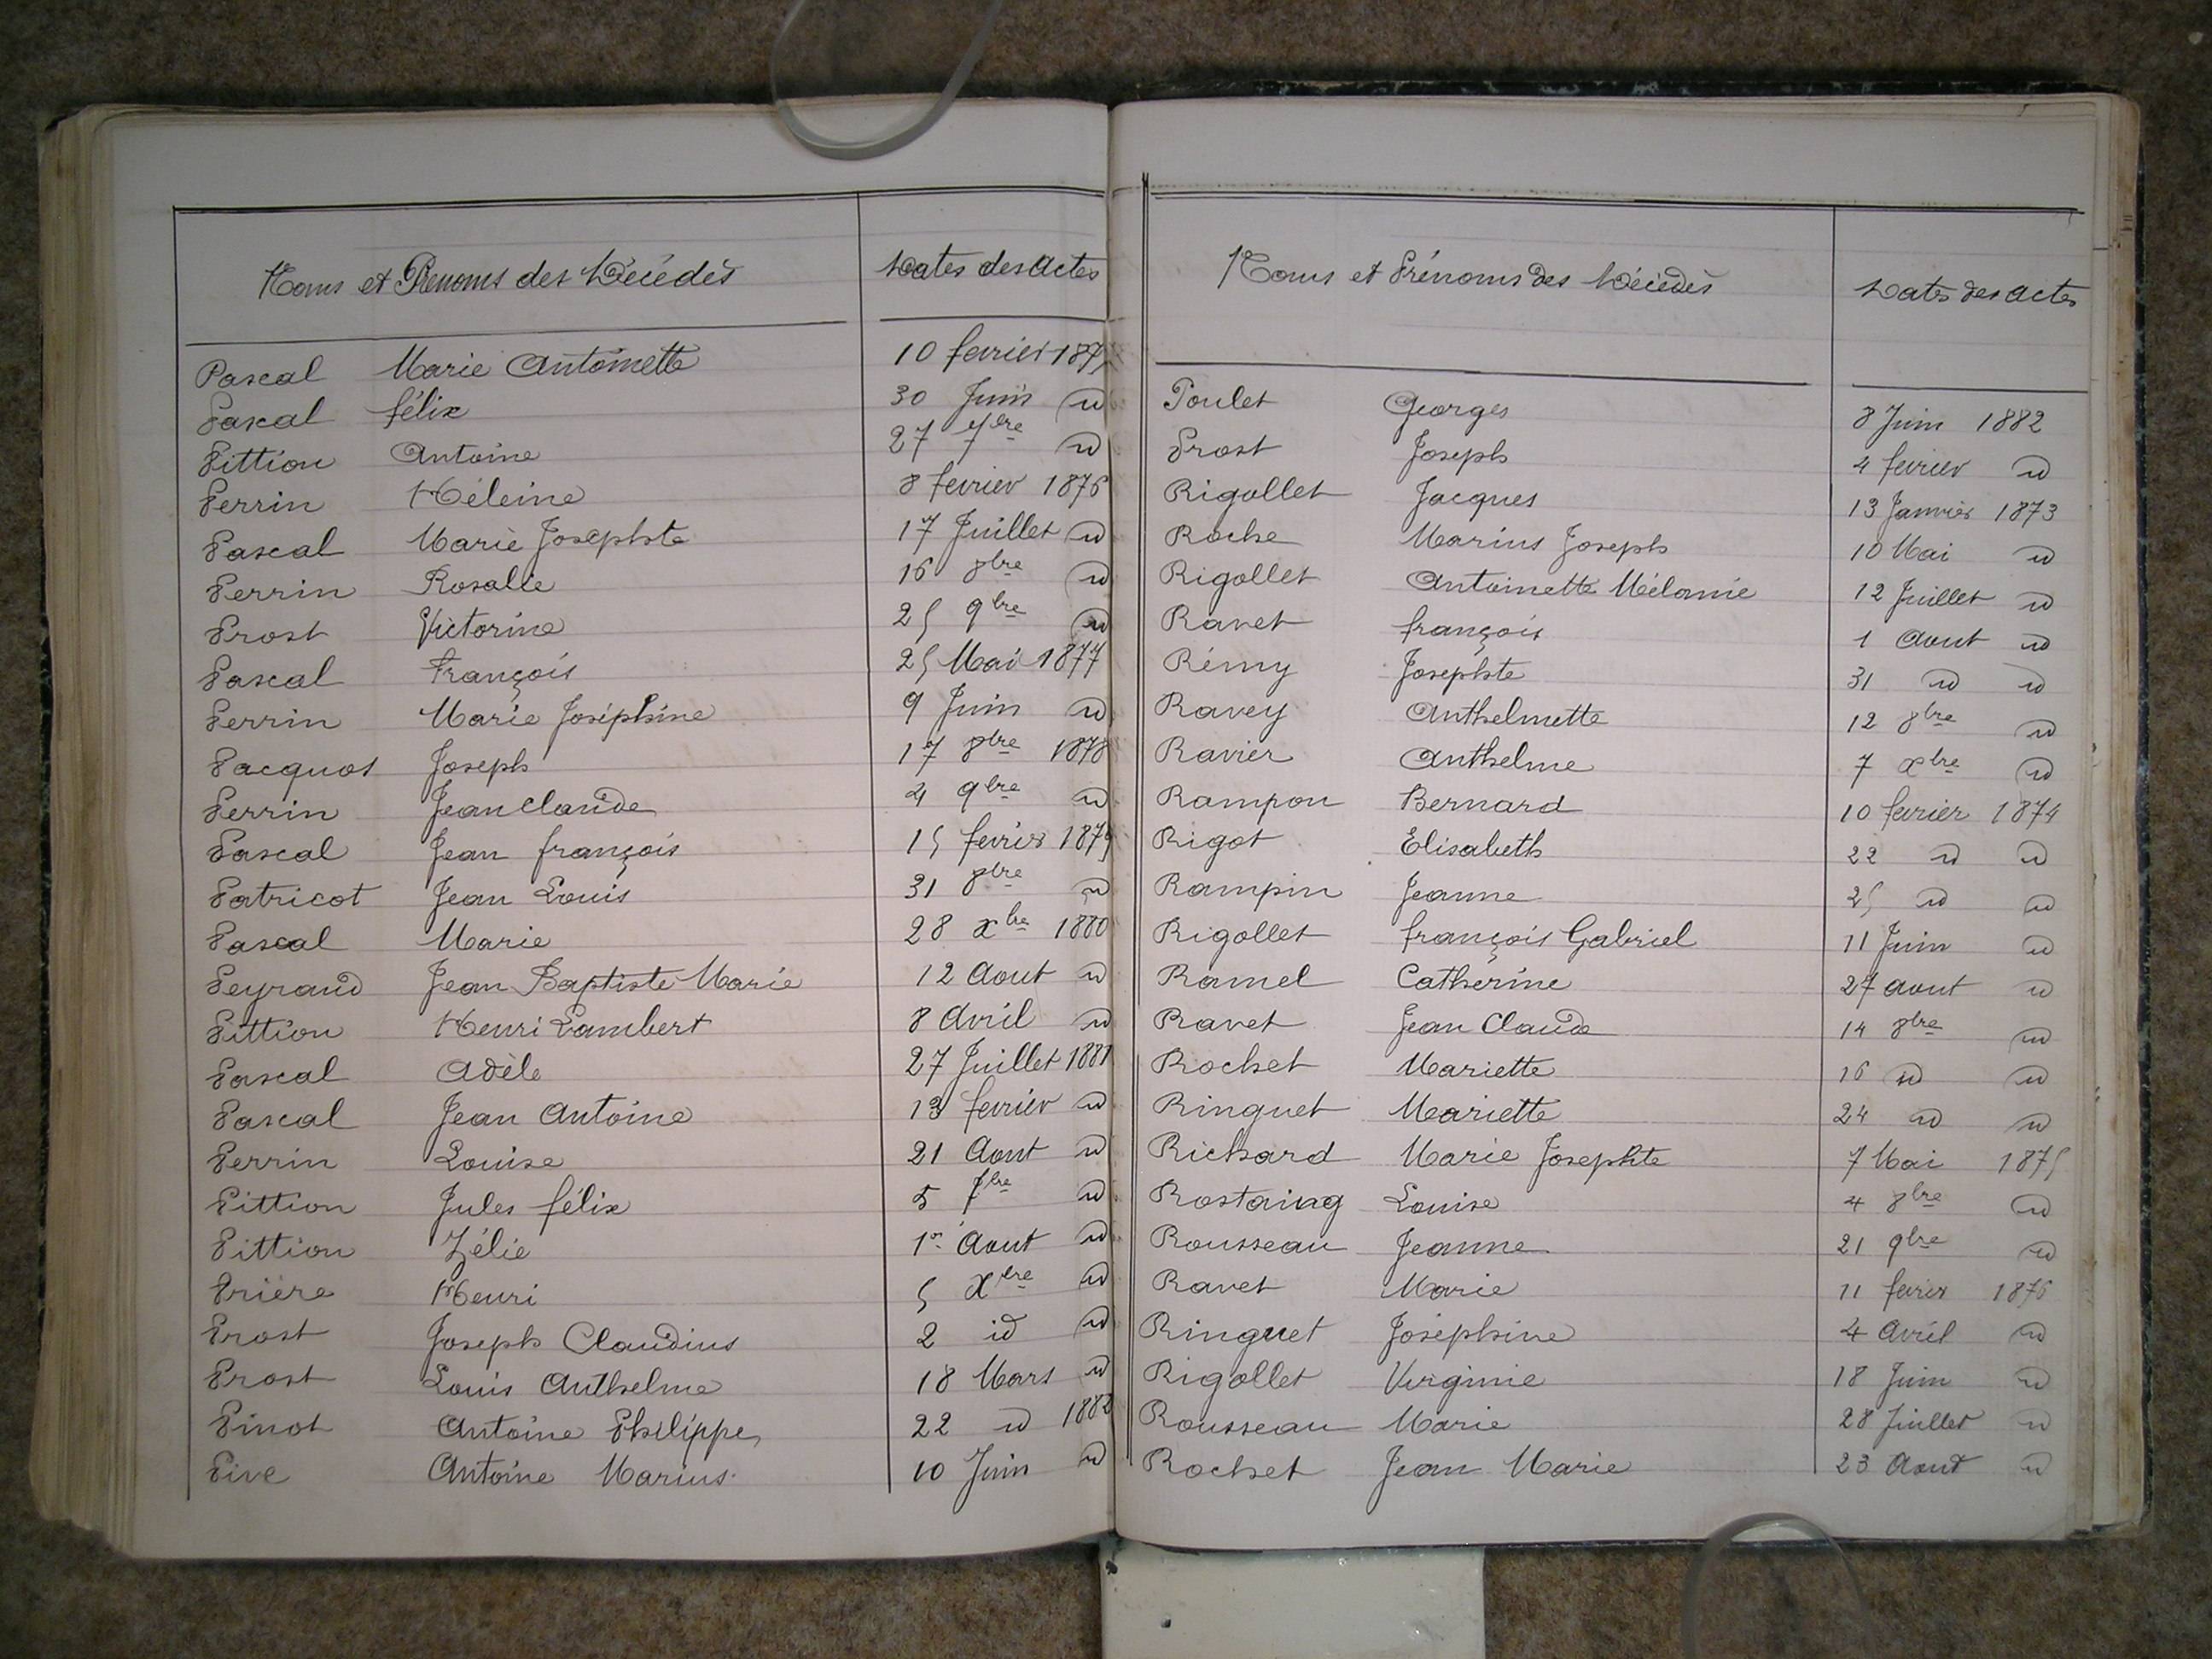 Noms et Prenoms des Décédés Dates des actes
Pascal Marie Antoinette 10 fevrier 1875
Pascal félix 30 Juin id
Pittion Antoine 27 7bre id
Perrin Héleine 8 fevrier 1876
Pascal Marie Josephte 17 Juillet id
Perrin Rosalie 16 8bre id
Prost Victorine 25 9bre id
Pascal François 25 Mai 1877
Perrin Marie Joséphine 9 Juin id
Pacquot Joseph 17 8bre 1878
Perrin Jean Claude 4 9bre id
Pascal Jean françois 15 fevrier 1879
Patricot Jean Louis 31 8bre id
Pascal Marie 28 xbre 1880
Peyraud Jean Baptiste Marie 12 Aout id
Pittion Henri Lambert 8 Avril id
Pascal Adèle 27 Juillet 1881
Pascal Jean Antoine 13 fevrier id
Perrin Louise 21 Aout id
Pittion Jules félix 5 7bre id
Pittion Zélie 1er Aout id
Prière Henri 5 Xbre id
Prost Joseph Claudius 2 id id
Prost Louis Anthelme 18 Mars id
Pinot Antoine Philippe 22 id 1882
Pive Antoine Marius 10 Juin id
Noms et Prénoms des Décédés Dates des actes
Poulet Georges 8 Juin 1882
Prost Joseph 4 fevrier id
Rigollet Jacques 13 Janvier 1873
Roche Marius Joseph 10 Mai id
Rigollet Antoinette Mélanie 12 Juillet id
Ravet françois 1 Aout id
Rémy Josephte 31 id id
Ravey Anthelmette 12 8bre id
Ravier Anthelme 7 xbre id
Rampon Bernard 10 fevrier 1874
Rigot Elisabeth 22 id id
Rampin Jeanne 25 id id
Rigollet françois Gabriel 11 Juin id
Ramel Catherine 27 aout id
Ravet Jean Claude 14 8bre id
Rochet Mariette 16 id id
Ringuet Mariette 24 id id
Richard Marie Josephte 7 Mai 1875
Rostaing Louise 4 8bre id
Rousseau Jeanne 21 9bre id
Ravet Marie 11 fevrier 1876
Ringuet Joséphine 4 Avril id
Rigollet Virginie 18 Juin id
Rousseau Marie 28 Juillet id
Rochet Jean Marie 23 Aout id